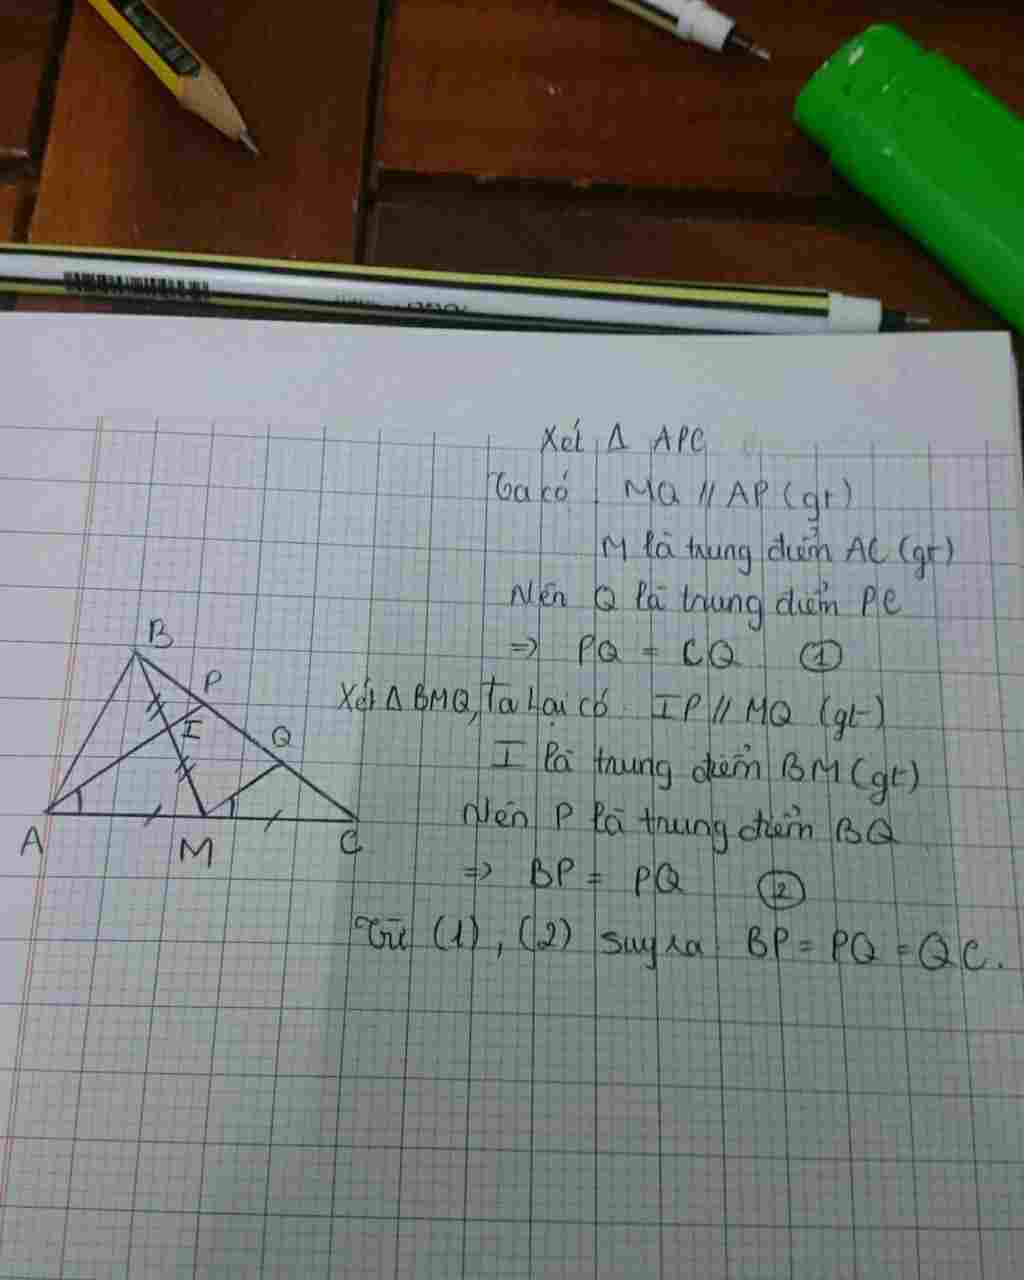 Xét Δ APC
Ta có MQ // AP (gt)
M là trung điểm AC (gt)
Nên Q là trung điểm PC
=> PQ = CQ ①
Xét Δ BMQ, Ta lại có IP // MQ (gt)
I là trung điểm BM (gt)
Nên P là trung điểm BQ
=> BP = PQ ②
Từ (1), (2) suy ra BP = PQ = QC.
B
P
I
Q
A
M
C